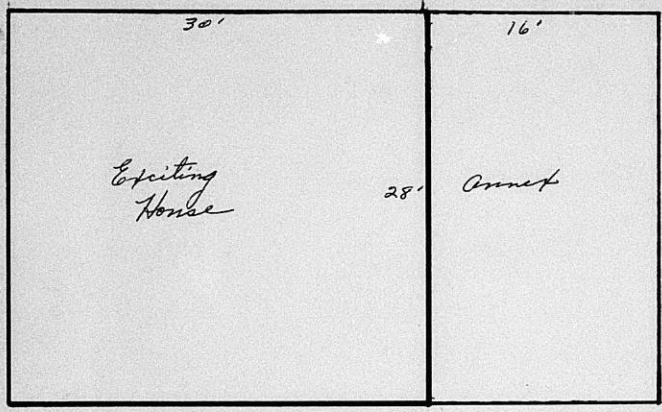 30'
16'
Exciting
House
28'
annex